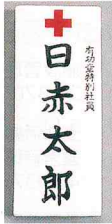 有功会特別社員
日赤太郎